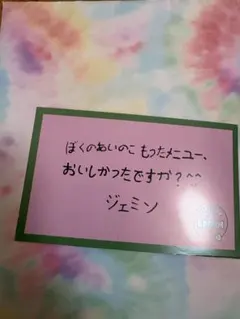 ぼくのあいのこもったメニュー、
おいしかったですか？^^
ジェミン